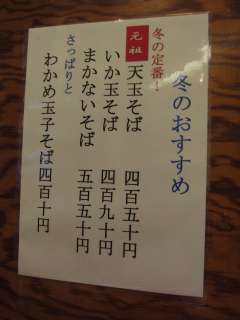 冬のおすすめ
冬の定番!
元祖 天玉そば 四百五十円
いか玉そば 四百九十円
まかないそば 五百五十円
さっぱりと
わかめ玉子そば四百十円